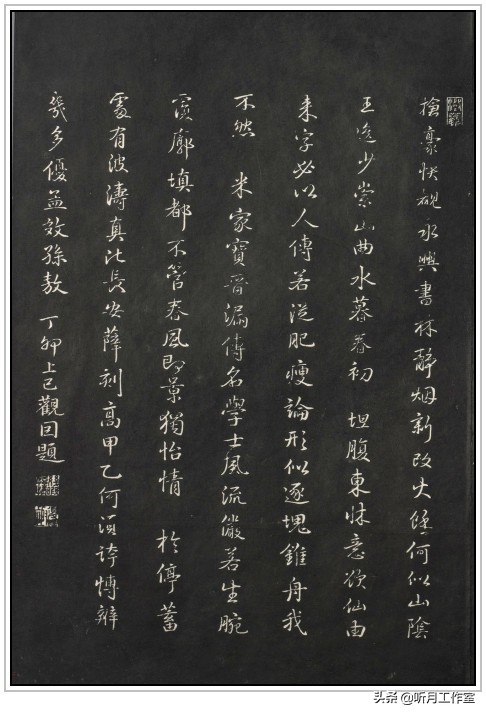 摛豪快覩永興書林靜烟新改火餘何似山陰
王逸少崇山曲水暮春初 坦腹東牀意欲仙由
来字必以人傳若從肥瘦論形似逐塊錐舟我
不然 米家寶晉漏傳名學士風流儼若生腕
廓填都不管春風即景獨怡情 於停蓄
處有波濤真比長安薛刻高甲乙何須誇博辨
幾多優孟效孫敖 丁卯上巳觀因題
头条@听月工作室